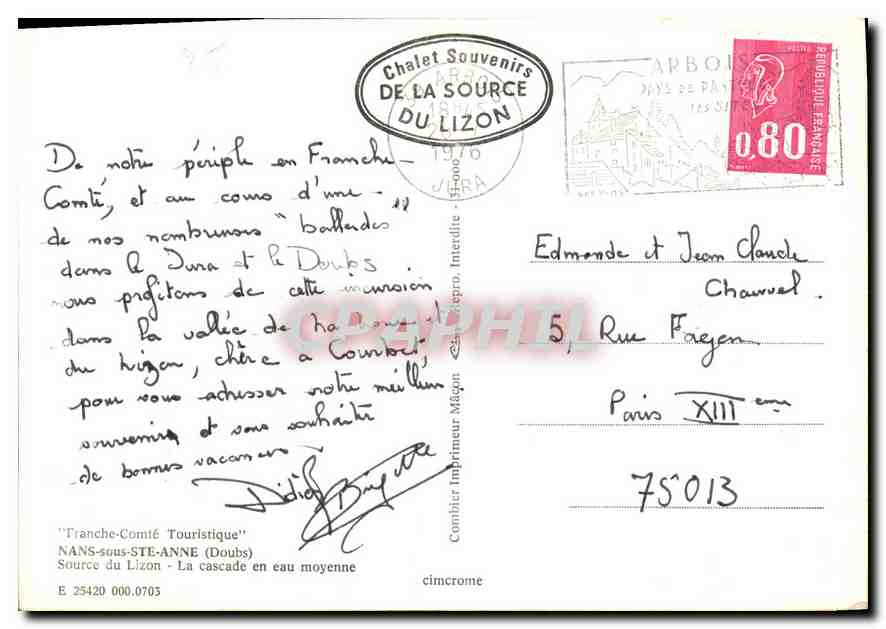 Chalet Souvenirs
DE LA SOURCE
DU LIZON
ARBO
18H45
1976
JURA
ARBOIS
PAYS DE PASTEUR
REPUBLIQUE FRANÇAISE
POSTES
0,80
De notre périple en Franche-
Comté, et au cours d'une
de nos nombreuses "ballades"
dans le Jura et le Doubs,
nous profitons de cette incursion
dans la vallée de la Loue et
du Lizon, chère à Courbet,
pour vous adresser notre meilleur
souvenir et vous souhaiter
de bonnes vacances
Didier Brigitte
Edmonde et Jean Claude
Chauvel.
5, Rue Fagon
Paris XIII eme
75013
"Franche-Comté Touristique"
NANS-sous-STE-ANNE (Doubs)
Source du Lizon - La cascade en eau moyenne
E 25420 000.0703
cimcrome
Combier Imprimeur Mâcon "Cim" Repro. Interdite - 31-000
CPAPHIL